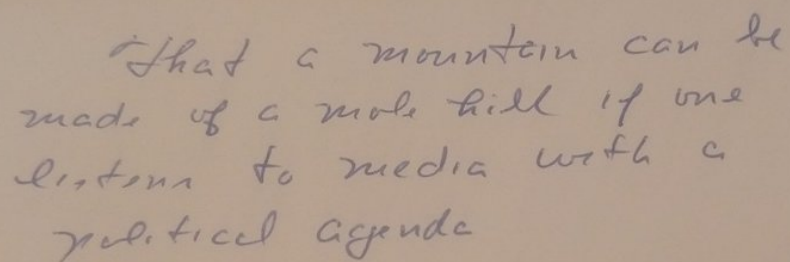 that a mountain can be
made of a mole hill if one
listens to media with a
political agenda